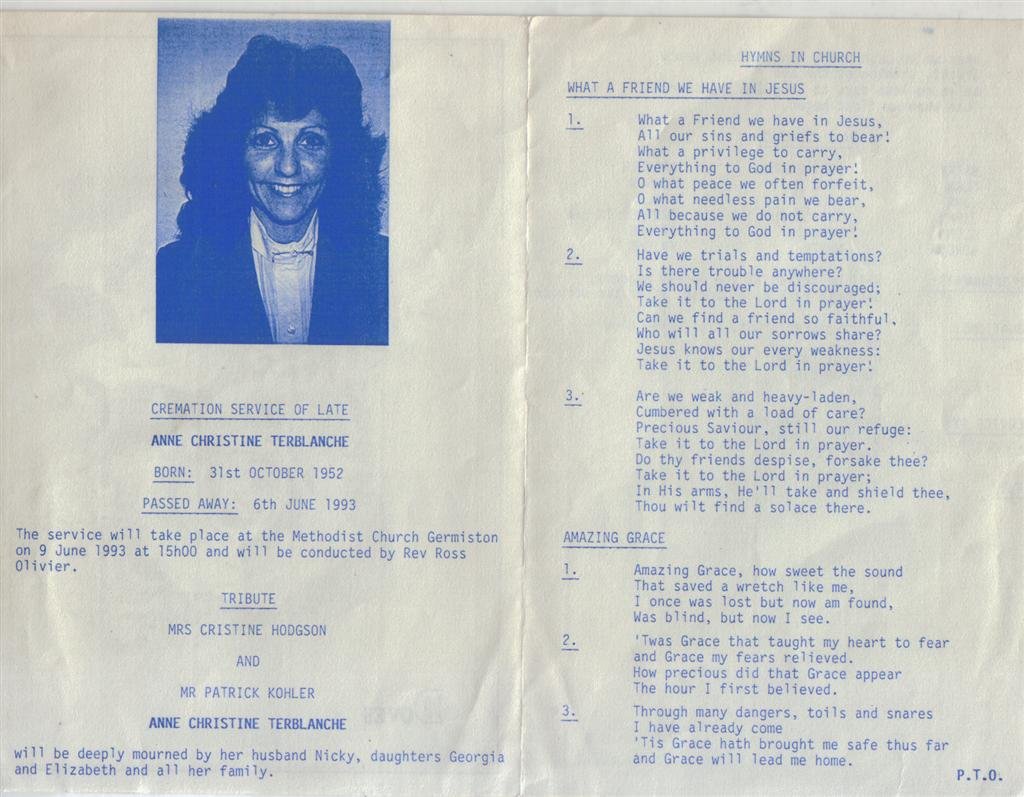 CREMATION SERVICE OF LATE
ANNE CHRISTINE TERBLANCHE
BORN: 31st OCTOBER 1952
PASSED AWAY: 6th JUNE 1993
The service will take place at the Methodist Church Germiston
on 9 June 1993 at 15h00 and will be conducted by Rev Ross
Olivier.
TRIBUTE
MRS CRISTINE HODGSON
AND
MR PATRICK KOHLER
ANNE CHRISTINE TERBLANCHE
will be deeply mourned by her husband Nicky, daughters Georgia
and Elizabeth and all her family.
HYMNS IN CHURCH
WHAT A FRIEND WE HAVE IN JESUS
1. What a Friend we have in Jesus,
All our sins and griefs to bear!
What a privilege to carry,
Everything to God in prayer!
O what peace we often forfeit,
O what needless pain we bear,
All because we do not carry,
Everything to God in prayer!
2. Have we trials and temptations?
Is there trouble anywhere?
We should never be discouraged;
Take it to the Lord in prayer!
Can we find a friend so faithful,
Who will all our sorrows share?
Jesus knows our every weakness:
Take it to the Lord in prayer!
3. Are we weak and heavy-laden,
Cumbered with a load of care?
Precious Saviour, still our refuge:
Take it to the Lord in prayer.
Do thy friends despise, forsake thee?
Take it to the Lord in prayer;
In His arms, He'll take and shield thee,
Thou wilt find a solace there.
AMAZING GRACE
1. Amazing Grace, how sweet the sound
That saved a wretch like me,
I once was lost but now am found,
Was blind, but now I see.
2. 'Twas Grace that taught my heart to fear
and Grace my fears relieved.
How precious did that Grace appear
The hour I first believed.
3. Through many dangers, toils and snares
I have already come
'Tis Grace hath brought me safe thus far
and Grace will lead me home.
P.T.O.